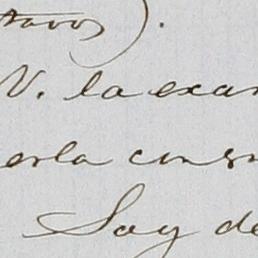 tavos).
V. la exam
erla consu
Soy de